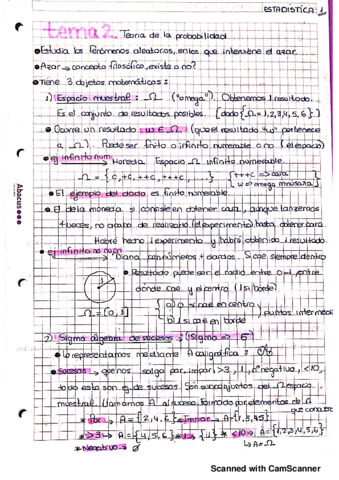 ESTADÍSTICA 1
tema 2. Teoría de la probabilidad
• Estudia los fenómenos aleatorios, en los que interviene el azar.
• Azar → concepto filosófico, existe o no?
• Tiene 3 objetos matemáticos:
1) Espacio muestral: Ω ("omega"). Obtenemos 1 resultado.
Es el conjunto de resultados posibles. [dado {Ω = 1,2,3,4,5,6}.]
• Ocurre un resultado: w ∈ Ω (que el resultado "w" pertenece
a Ω). Puede ser finito o infinito numerable o no (el espacio)
ej infinito num. Moneda. Espacio Ω infinito numerable.
Ω = {c, +c, ++c, +++c, ...} {+++c ⇒ cara
{w ⇒ omega minúscula}
• El ejemplo del dado es finito numerable.
• El de la moneda: consiste en obtener cara, aunque lanzemos
4 veces, no acabo de realizarlo (el experimento) hasta obtener cara.
Habré hecho 1 experimento y habré obtenido 1 resultado.
ej infinito no num Diana con números + dardos. Si cae dentro
• Resultado puede ser el radio entre 0-1, entre
donde cae y el centro (1 si borde)
Ω = [0,1] {a) 0 si cae en centro
{b) 1 si cae en borde } puntos intermedios
2) Sigma álgebra de sucesos: (Sigma ⇒ σ)
• Lo representamos mediante A caligráfica:
• Sucesos → que nos salga par, impar, >3, 1, nº negativo, <10,
todo esto son ej de sucesos. Son subconjuntos del Ω espacio
muestral. Llamamos A al suceso, formado por elementos de Ω
* Par → A = {2,4,6} * Impar → A = {1,3,5}
* >3 → A = {4,5,6} * 1 → {1} * <10 → A = {1,2,3,4,5,6}
* Negativo → Ø ↳ A = Ω
Abacus
Scanned with CamScanner